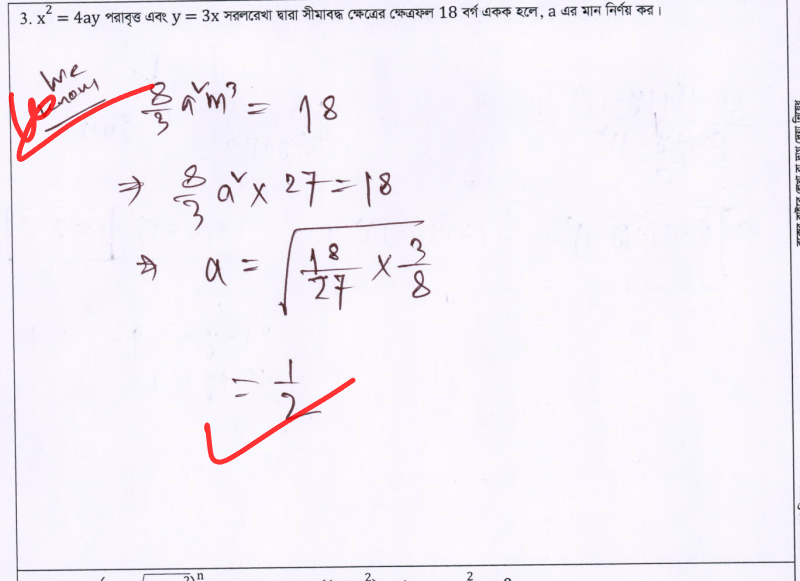 3. x² = 4ay পরাবৃত্ত এবং y = 3x সরলরেখা দ্বারা সীমাবদ্ধ ক্ষেত্রের ক্ষেত্রফল 18 বর্গ একক হলে, a এর মান নির্ণয় কর।
We know
8/3 a² m³ = 18
⇒ 8/3 a² × 27 = 18
⇒ a = √(18/27 × 3/8)
= 1/2